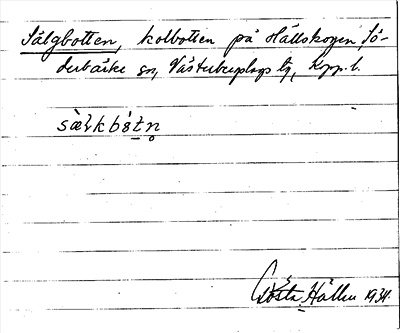 Sälgbotten, kolbotten på Hällskogen, Sö-
derbärke sn, Västerbergslags tg, Kopp. l.
sæ̀lkbòtn̥
Gösta Hållén 1931.